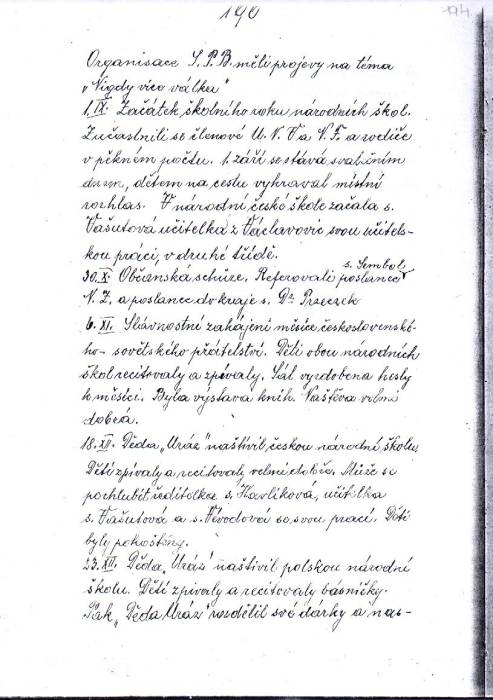 190
174.
Organisace S.P.B. měli projevy na téma
„Nigdy více válku“
1.IX. Začátek školního roku národních škol.
Zúčastnili se členové M.N.V a N.F. a rodiče
v pěkném počtu. 1. září se stává svátečním
dnem, dětem na cestu vyhrával místní
rozhlas. V národní české škole začala s.
Vašutová učitelka z Václavovic svou učitels-
kou práci, v druhé třídě.
s. Sembol
30.X. Občanská schůze. Referovali poslanec
N.Z. a poslanec do kraje s. Dr. Przeczek
6. XI. Slávnostní zahájení měsíce československé-
ho-sovětského přátelství. Děti obou národních
škol recitovaly a zpívaly. Sál vyzdobena hesly
k měsíci. Byla výstava knih. Naštěva velmi
dobrá.
18.XII. Děda „Mráz“ naštivil českou národní školu
Děti zpívaly a recitovaly velmi dobře. Může se
pochlubit ředitelka s. Havlíková, učitelka
s. Vašutová a s. so svou prací. Děti
byly pohoštěny.
23.XII. Děda „Mráz“ naštivil polskou národní
školu. Děti zpívaly a recitovaly básničky.
Pak „Děda Mráz“ rozdělil své dárky a nas-